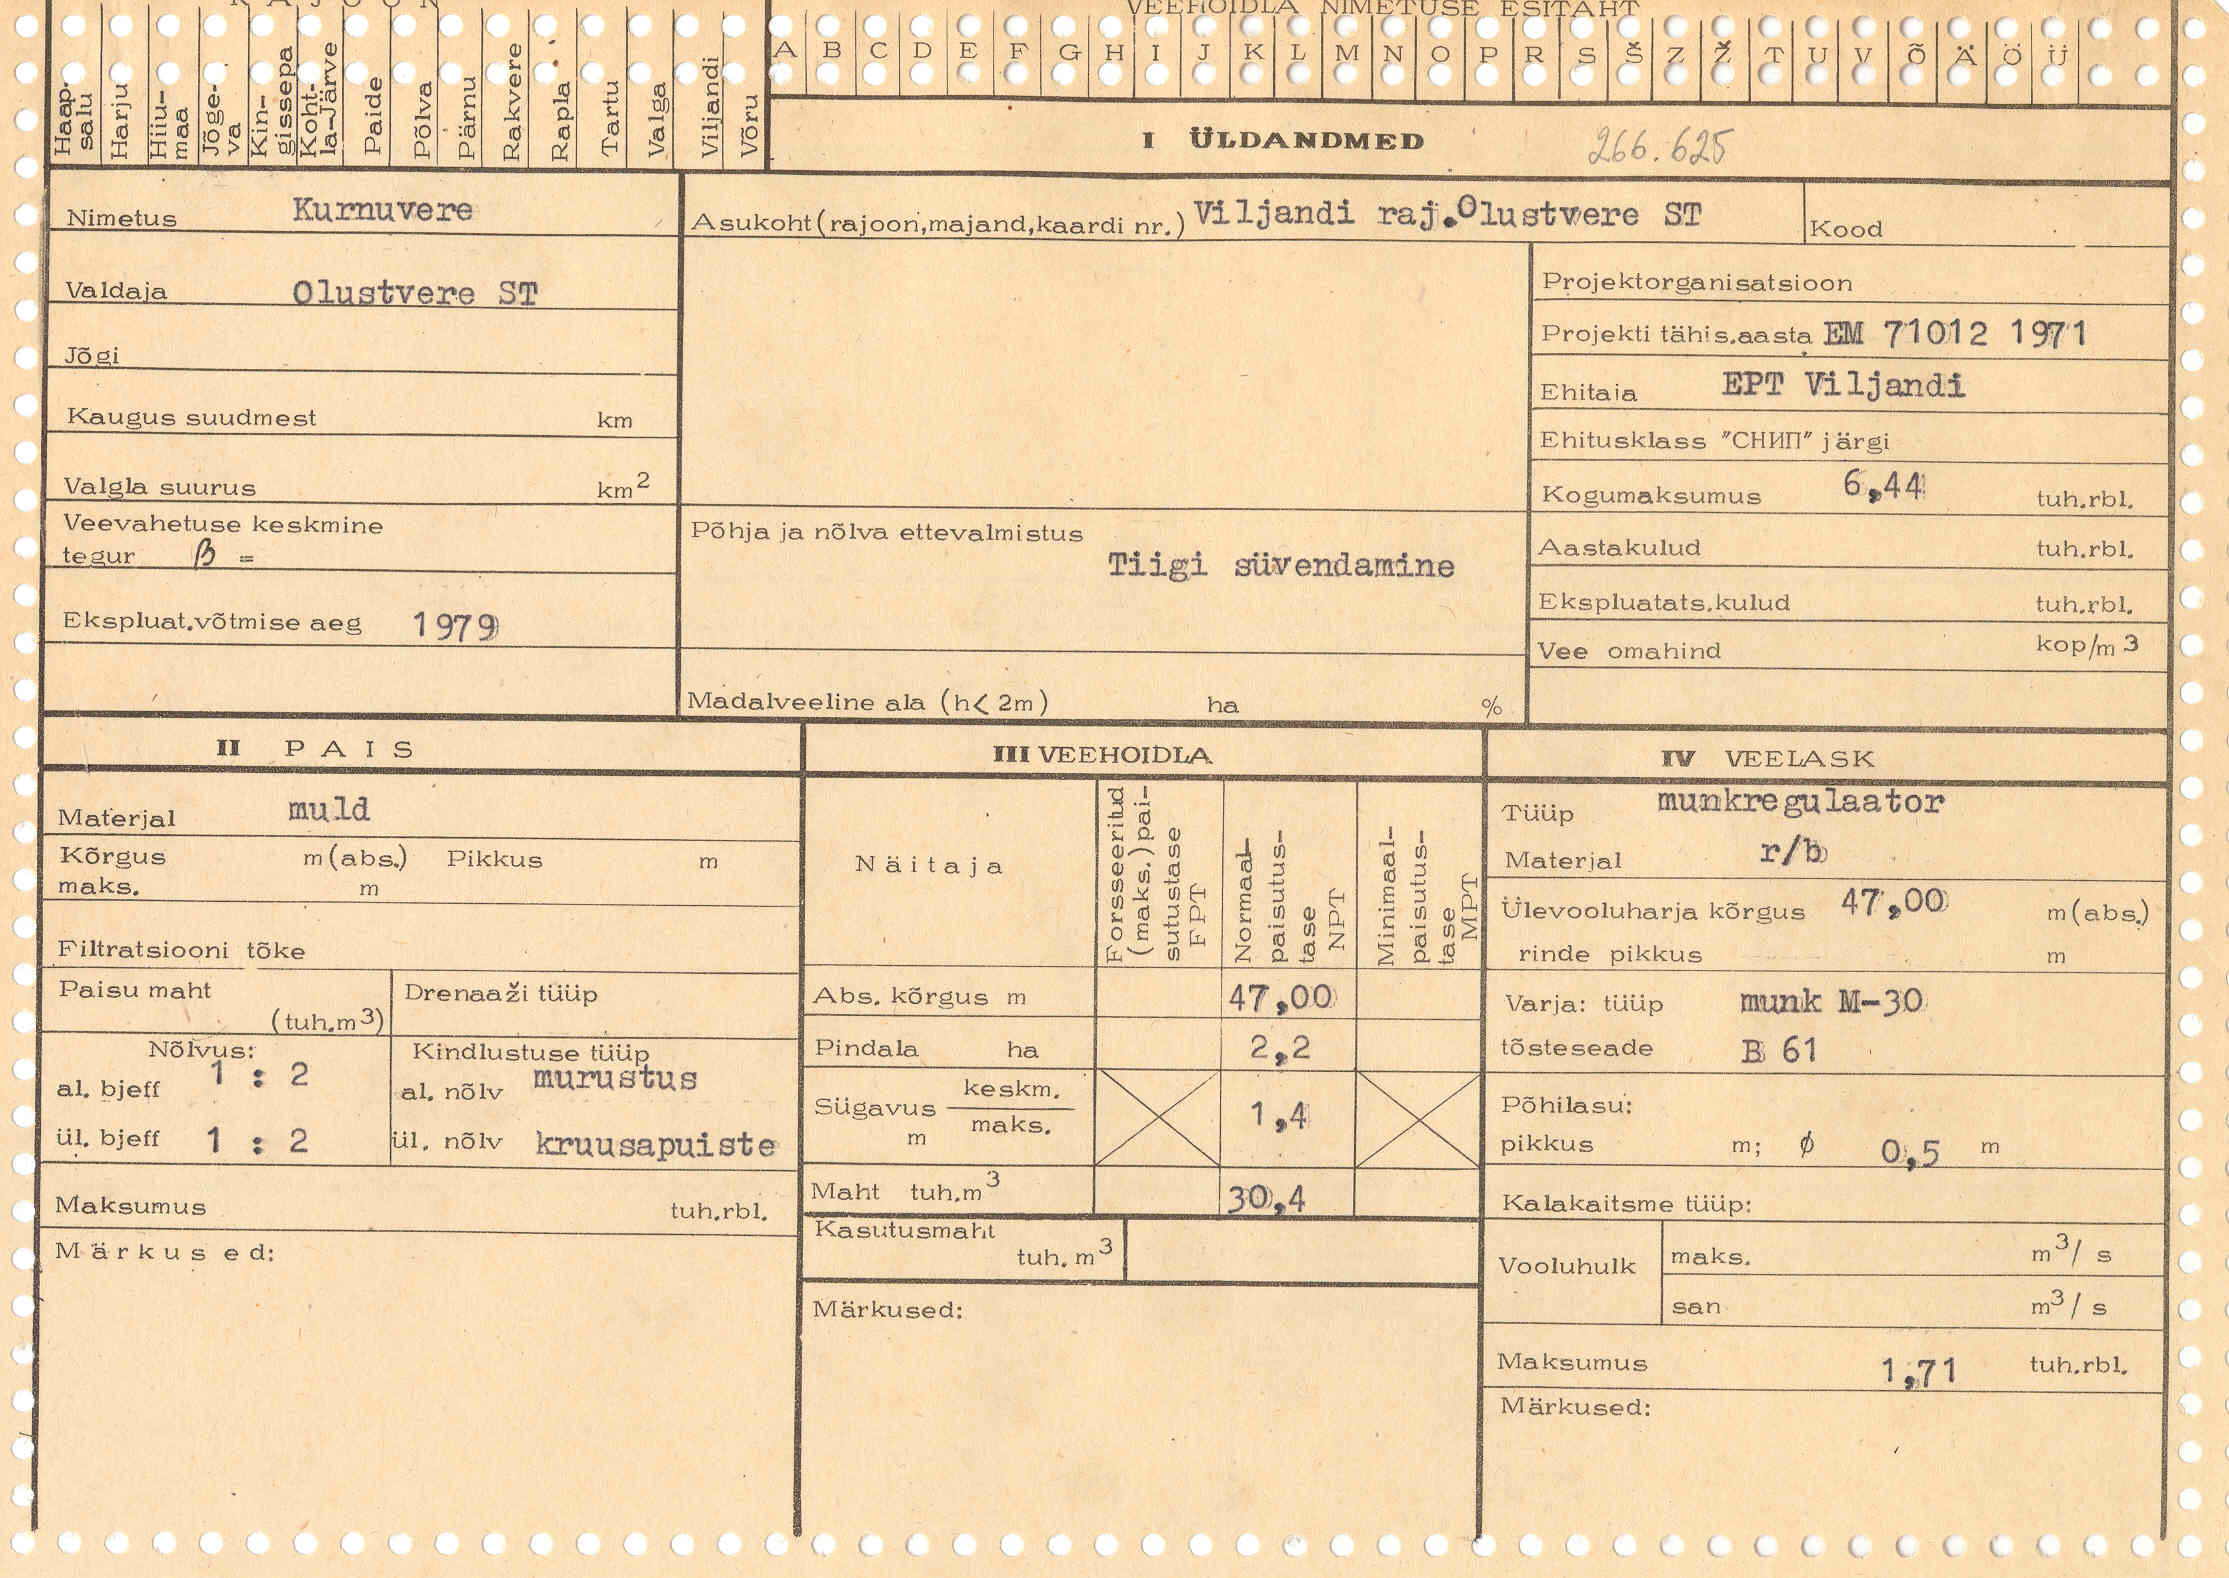 RAJOON
VEEHOIDLA NIMETUSE ESITÄHT
A B C D E F G H I J K L M N O P R S Š Z Ž T U V Õ Ä Ö Ü
Haap-
salu
Harju
Hiiu-
maa
Jõge-
va
Kin-
gissepa
Koht-
la-Järve
Paide
Põlva
Pärnu
Rakvere
Rapla
Tartu
Valga
Viljandi
Võru
I ÜLDANDMED 266.625
Nimetus Kurnuvere
Asukoht (rajoon,majand,kaardi nr.) Viljandi raj.Olustvere ST
Kood
Valdaja Olustvere ST
Jõgi
Kaugus suudmest km
Valgla suurus km2
Veevahetuse keskmine
tegur β =
Ekspluat.võtmise aeg 1979
Põhja ja nõlva ettevalmistus
Tiigi süvendamine
Madalveeline ala (h< 2m) ha %
Projektorganisatsioon
Projekti tähis.aasta EM 71012 1971
Ehitaja EPT Viljandi
Ehitusklass "СНИП" järgi
Kogumaksumus 6,44 tuh.rbl.
Aastakulud tuh.rbl.
Ekspluatats.kulud tuh.rbl.
Vee omahind kop/m3
II PAIS
Materjal muld
Kõrgus m(abs.) Pikkus m
maks. m
Filtratsiooni tõke
Paisu maht
(tuh.m3)
Drenaaži tüüp
Nõlvus:
al. bjeff 1 : 2
ül. bjeff 1 : 2
Kindlustuse tüüp
al. nõlv murustus
ül. nõlv kruusapuiste
Maksumus tuh.rbl.
Märkused:
III VEEHOIDLA
Näitaja
Forsseeritud
(maks.)pai-
sutustase
FPT
Normaal-
paisutus-
tase
NPT
Minimaal-
paisutus-
tase
MPT
Abs. kõrgus m 47,00
Pindala ha 2,2
Sügavus keskm.
m maks. 1,4
Maht tuh.m3 30,4
Kasutusmaht
tuh. m3
Märkused:
IV VEELASK
Tüüp munkregulaator
Materjal r/b
Ülevooluharja kõrgus 47,00 m(abs.)
rinde pikkus m
Varja: tüüp munk M-30
tõsteseade B 61
Põhilasu:
pikkus m; ϕ 0,5 m
Kalakaitsme tüüp:
Vooluhulk maks. m3/ s
san m3/ s
Maksumus 1,71 tuh.rbl.
Märkused: